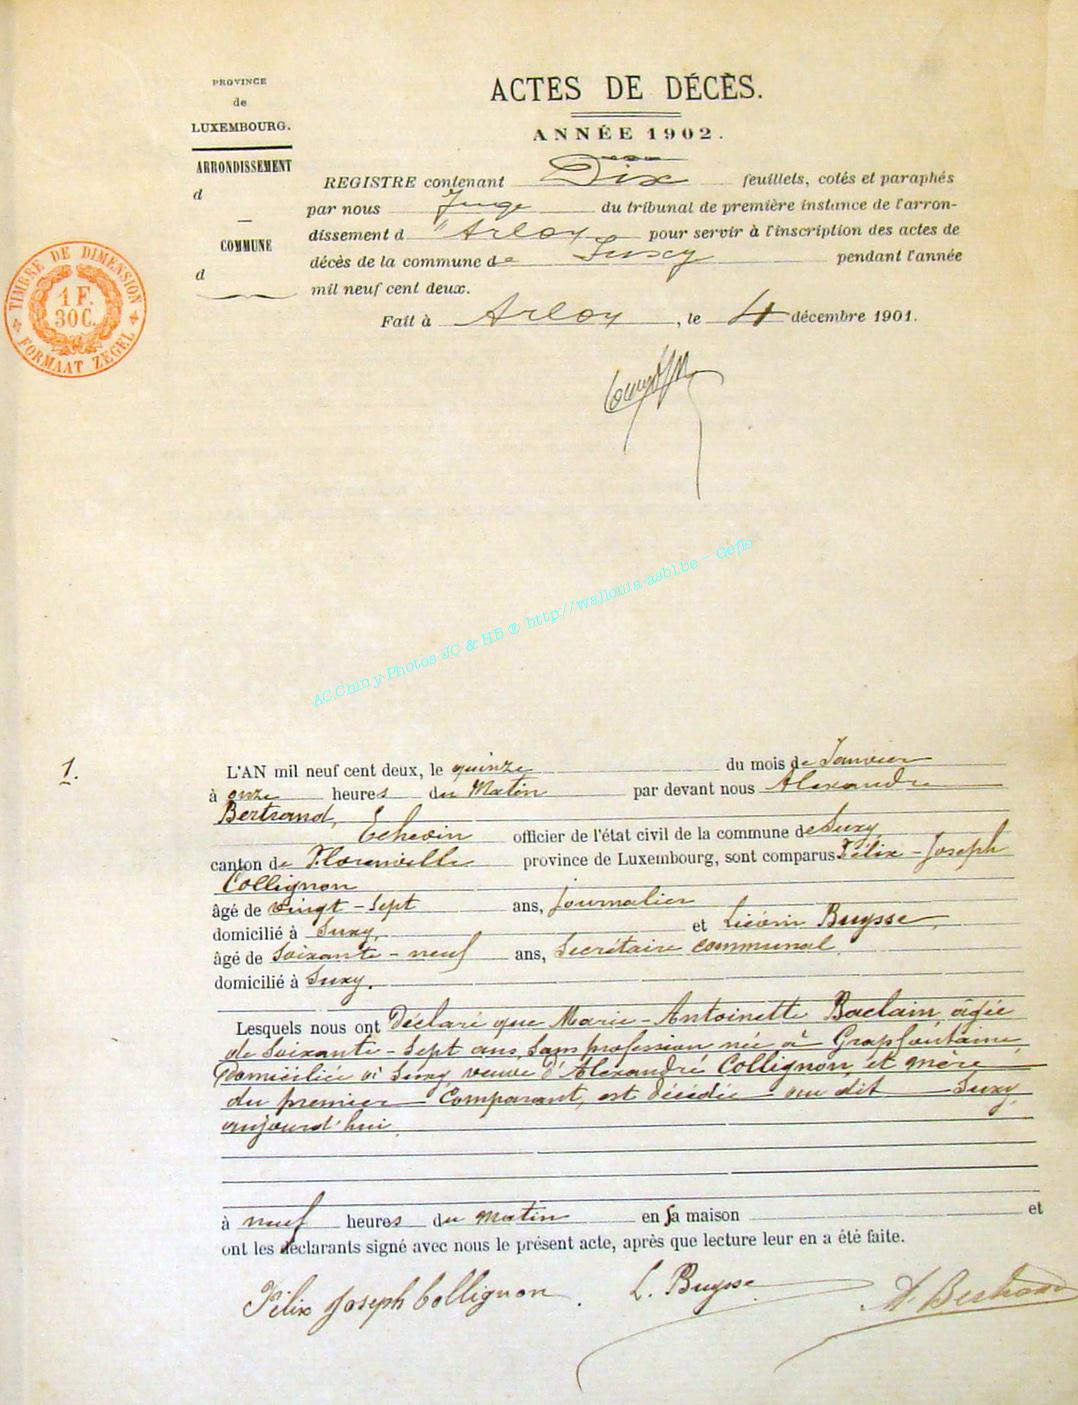 PROVINCE
de
LUXEMBOURG.
ARRONDISSEMENT
d
COMMUNE
d
TIMBRE DE DIMENSION
1 F.
30 C.
FORMAAT ZEGEL
ACTES DE DÉCÈS.
ANNÉE 1902.
REGISTRE contenant Dix feuillets, cotés et paraphés
par nous Juge du tribunal de première instance de l'arron-
dissement d'Arlon pour servir à l'inscription des actes de
décès de la commune de Suxy pendant l'année
mil neuf cent deux.
Fait à Arlon, le 4 décembre 1901.
AC.Chiny-Photos JC & HB @ http://wallonia-asbl.be - Gefis
1.
L'AN mil neuf cent deux, le quinze du mois de Janvier
à onze heures du Matin par devant nous Alexandre
Bertrand,
Echevin officier de l'état civil de la commune de Suxy,
canton de Florenville province de Luxembourg, sont comparus Félix-Joseph
Collignon
âgé de vingt-sept ans, journalier
domicilié à Suxy, et Buysse,
âgé de soixante-neuf ans, Secrétaire communal,
domicilié à Suxy.
Lesquels nous ont Déclaré que Marie-Antoinette Baclain, âgée
de Soixante-Sept ans, sans profession née à Grapfontaine,
domiciliée à Suxy veuve d'Alexandre Collignon, et mère
du premier Comparant, est décédée au dit Suxy,
aujourd'hui,
à neuf heures du matin en sa maison et
ont les déclarants signé avec nous le présent acte, après que lecture leur en a été faite.
Félix Joseph Collignon. L. Buysse A. Bertrand